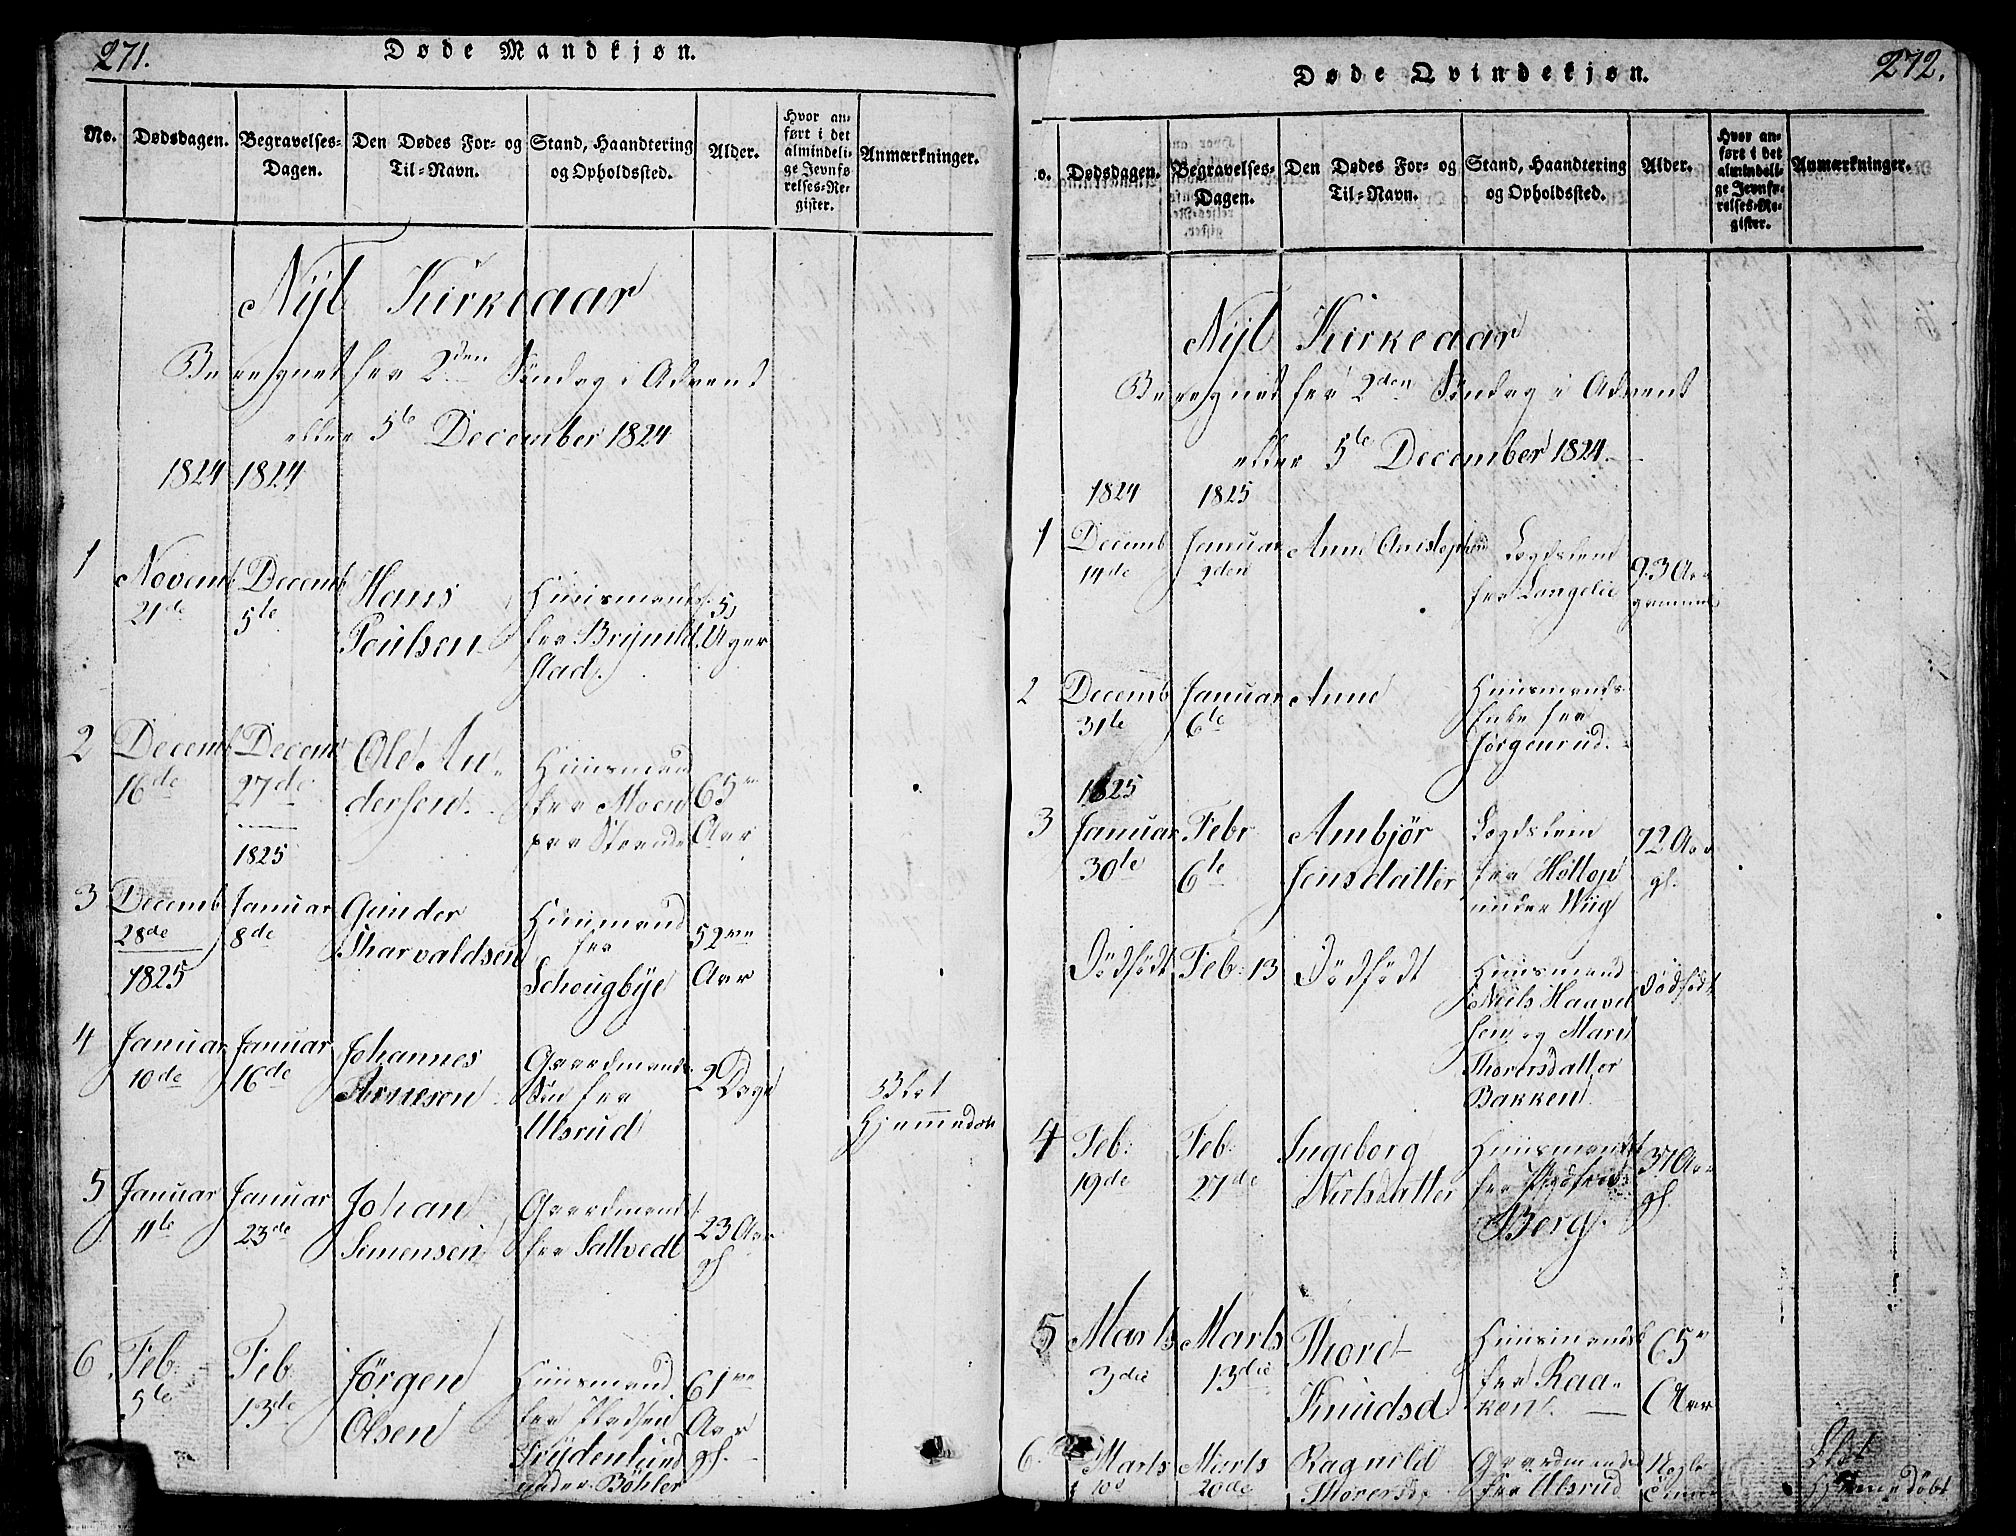 271.
Døde Mandkjøn.
No.
Dødsdagen.
Begravelses-
Dagen.
Den Dødes For- og
Til-Navn.
Stand, Haandtering
og Opholdssted.
Alder.
Hvor an-
ført i det
almindeli-
ge Jevnfø-
relses-Re-
gister.
Anmærkninger.
Nyt Kirkeaar
Beregnet fra 2den Søndag i Advent
eller 5te December 1824
1824 1824
1
Novemb
21de
Decemb
5te
Hans
Poulsen
Huusmands
fra Brynild
stad.
5
Uger
2
Decemb
16de
Decemb
27de
1825
Ole An-
dersen
Huusmand
fra Moen
paa Strande
65
Aar
3
Decemb
28de
1825
Januar
8de
Gunder
Tharvaldsen
Huusmand
fra
Schougbye
52
Aar
4
Januar
10de
Januar
16de
Johannes
Arnesen
Gaardmands
Søn fra
Ulsrud
2 Dage
Blot
Hjemmedøbt
5
Januar
11te
Januar
23de
Johan
Simensen
Gaardmands
fra Saltvedt
23 Aar
gl.
6
Feb:
5te
Feb
13de
Jörgen
Olsen
Huusmand
fra Pladsen
Frydenlund
under Böhler
61
Aar
gl.
272.
Døde Qvindekjøn.
o.
Dødsdagen.
Begravelses-
Dagen.
Den Dødes For- og
Til-Navn.
Stand, Haandtering
og Opholdssted.
Alder.
Hvor an-
ført i det
almindeli-
ge Jevnfø-
relses-Re-
gister.
Anmærkninger.
Nyt Kirkeaar
Beregnet fra 2den Søndag i Advent
eller 5te December 1824
1824 1825
1
Decemb
14de
Januar
2den
Anne
Lægdslem
fra Langelie
93 Aar
gammel
2
Decemb
31te
1825
Januar
6te
Anne
Huusmands
Enke fra
Jørgenrud.
3
Januar
30te
Febr
6te
Ambjör
Jensdatter
Lægdslem
fra Holtop
under Wiig
72 Aar
gl.
Dödfödt
Feb: 13
Dödfödt
Huusmand
Niels Haavel
sen og Mari
Thorersdatter
Bakken
Dödfödt
4
Feb:
19de
Feb:
27de
Ingeborg
Nielsdatter
Huusmands
fra
Berg.
37 Aar
gl.
5
Marts
3die
Marts
13die
Thore
Knudsd
Huusmandsk
fra Raa-
ken.
65
Aar
6.
Marts
Marts
20de
Ragnild
Thorersd
Gaardmands
fra Ulsrud
Hjemmedøbt